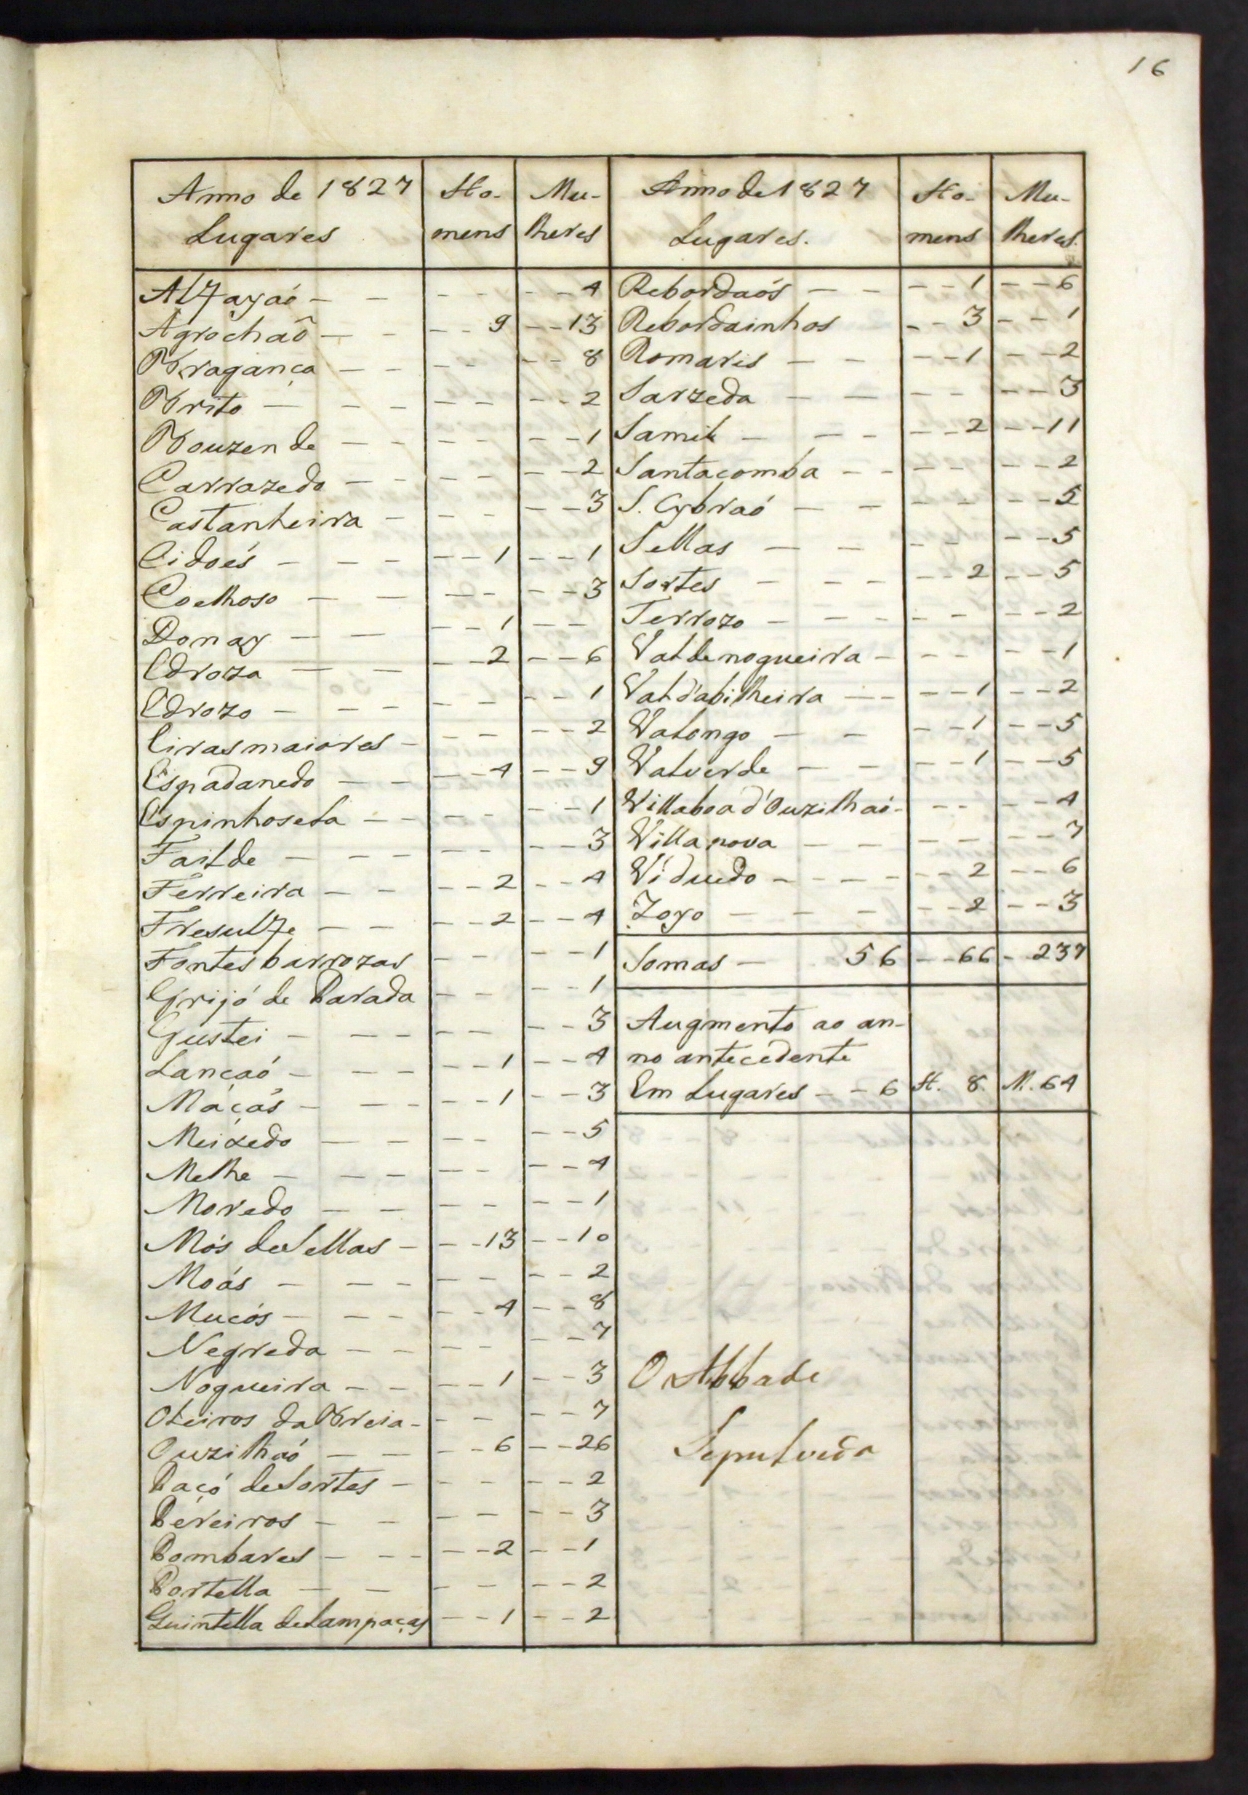 16
Anno de 1827 Ho- Mu-
Lugares mens lheres
Alfayaó - - - - - 4
Agrochaõ - - - - 9 - - 13
Bragança - - - - - - 8
Brito - - - - - - - 2
Bouzende - - - - - - 1
Carrazedo - - - - - - 2
Castanheira - - - - - 3
Cidoés - - - - - 1 - - 1
Coelhoso - - - - - - 3
Donay - - - - 1 - -
Edroza - - - - 2 - - 6
Edrozo - - - - - - - 1
Eirasmaiores - - - - - 2
Espadanedo - - - - 4 - - 9
Espinhosela - - - - - - 1
Failde - - - - - - - 3
Ferreira - - - - 2 - - 4
Fresulfe - - - - 2 - - 4
Fontes barrozas - - - - 1
Grijó de Parada - - - - 1
Gustei - - - - - - 3
Lançaó - - - - - 1 - - 4
Máçás - - - - - 1 - - 3
Meixedo - - - - - - 5
Melhe - - - - - - - 4
Moredo - - - - - - - 1
Mós de Sellas - - - 13 - - 10
Moás - - - - - - - 2
Mucós - - - - - 4 - - 8
Negreda - - - - - - 7
Nogueira - - - - 1 - - 3
Oleiros da Breia - - - - - 7
Ouzilhaó - - - - 6 - - 26
Paçó de Sortes - - - - - 2
Pereiros - - - - - - 3
Pombares - - - - - 2 - - 1
Portella - - - - - - 2
Quintella de Lampaças - - 1 - - 2
Anno de 1827 Ho- Mu-
Lugares. mens lheres.
Rebordaós - - - - 1 - - 6
Rebordainhos - - 3 - - 1
Romaris - - - - 1 - - 2
Sarzeda - - - - - - 3
Samil - - - - - 2 - - 11
Santacomba - - - - - - 2
S. Cybraó - - - - - - 5
Sellas - - - - - - 5
Sortes - - - - - 2 - - 5
Terrozo - - - - - - - 2
Valdenogueira - - - - - - 1
Vald'abilheira - - - - 1 - - 2
Valongo - - - - 1 - - 5
Valverde - - - - 1 - - 5
Villaboa d'Ouzilhaó - - - - - 4
Villa nova - - - - - - 7
Viduedo - - - - - 2 - - 6
Zoyo - - - - - 2 - - 3
Somas - 56 - - 66 - 237
Augmento ao an-
no antecedente
Em Lugares - - 6 H. 8 M. 64
O Abbade
Sepulveda